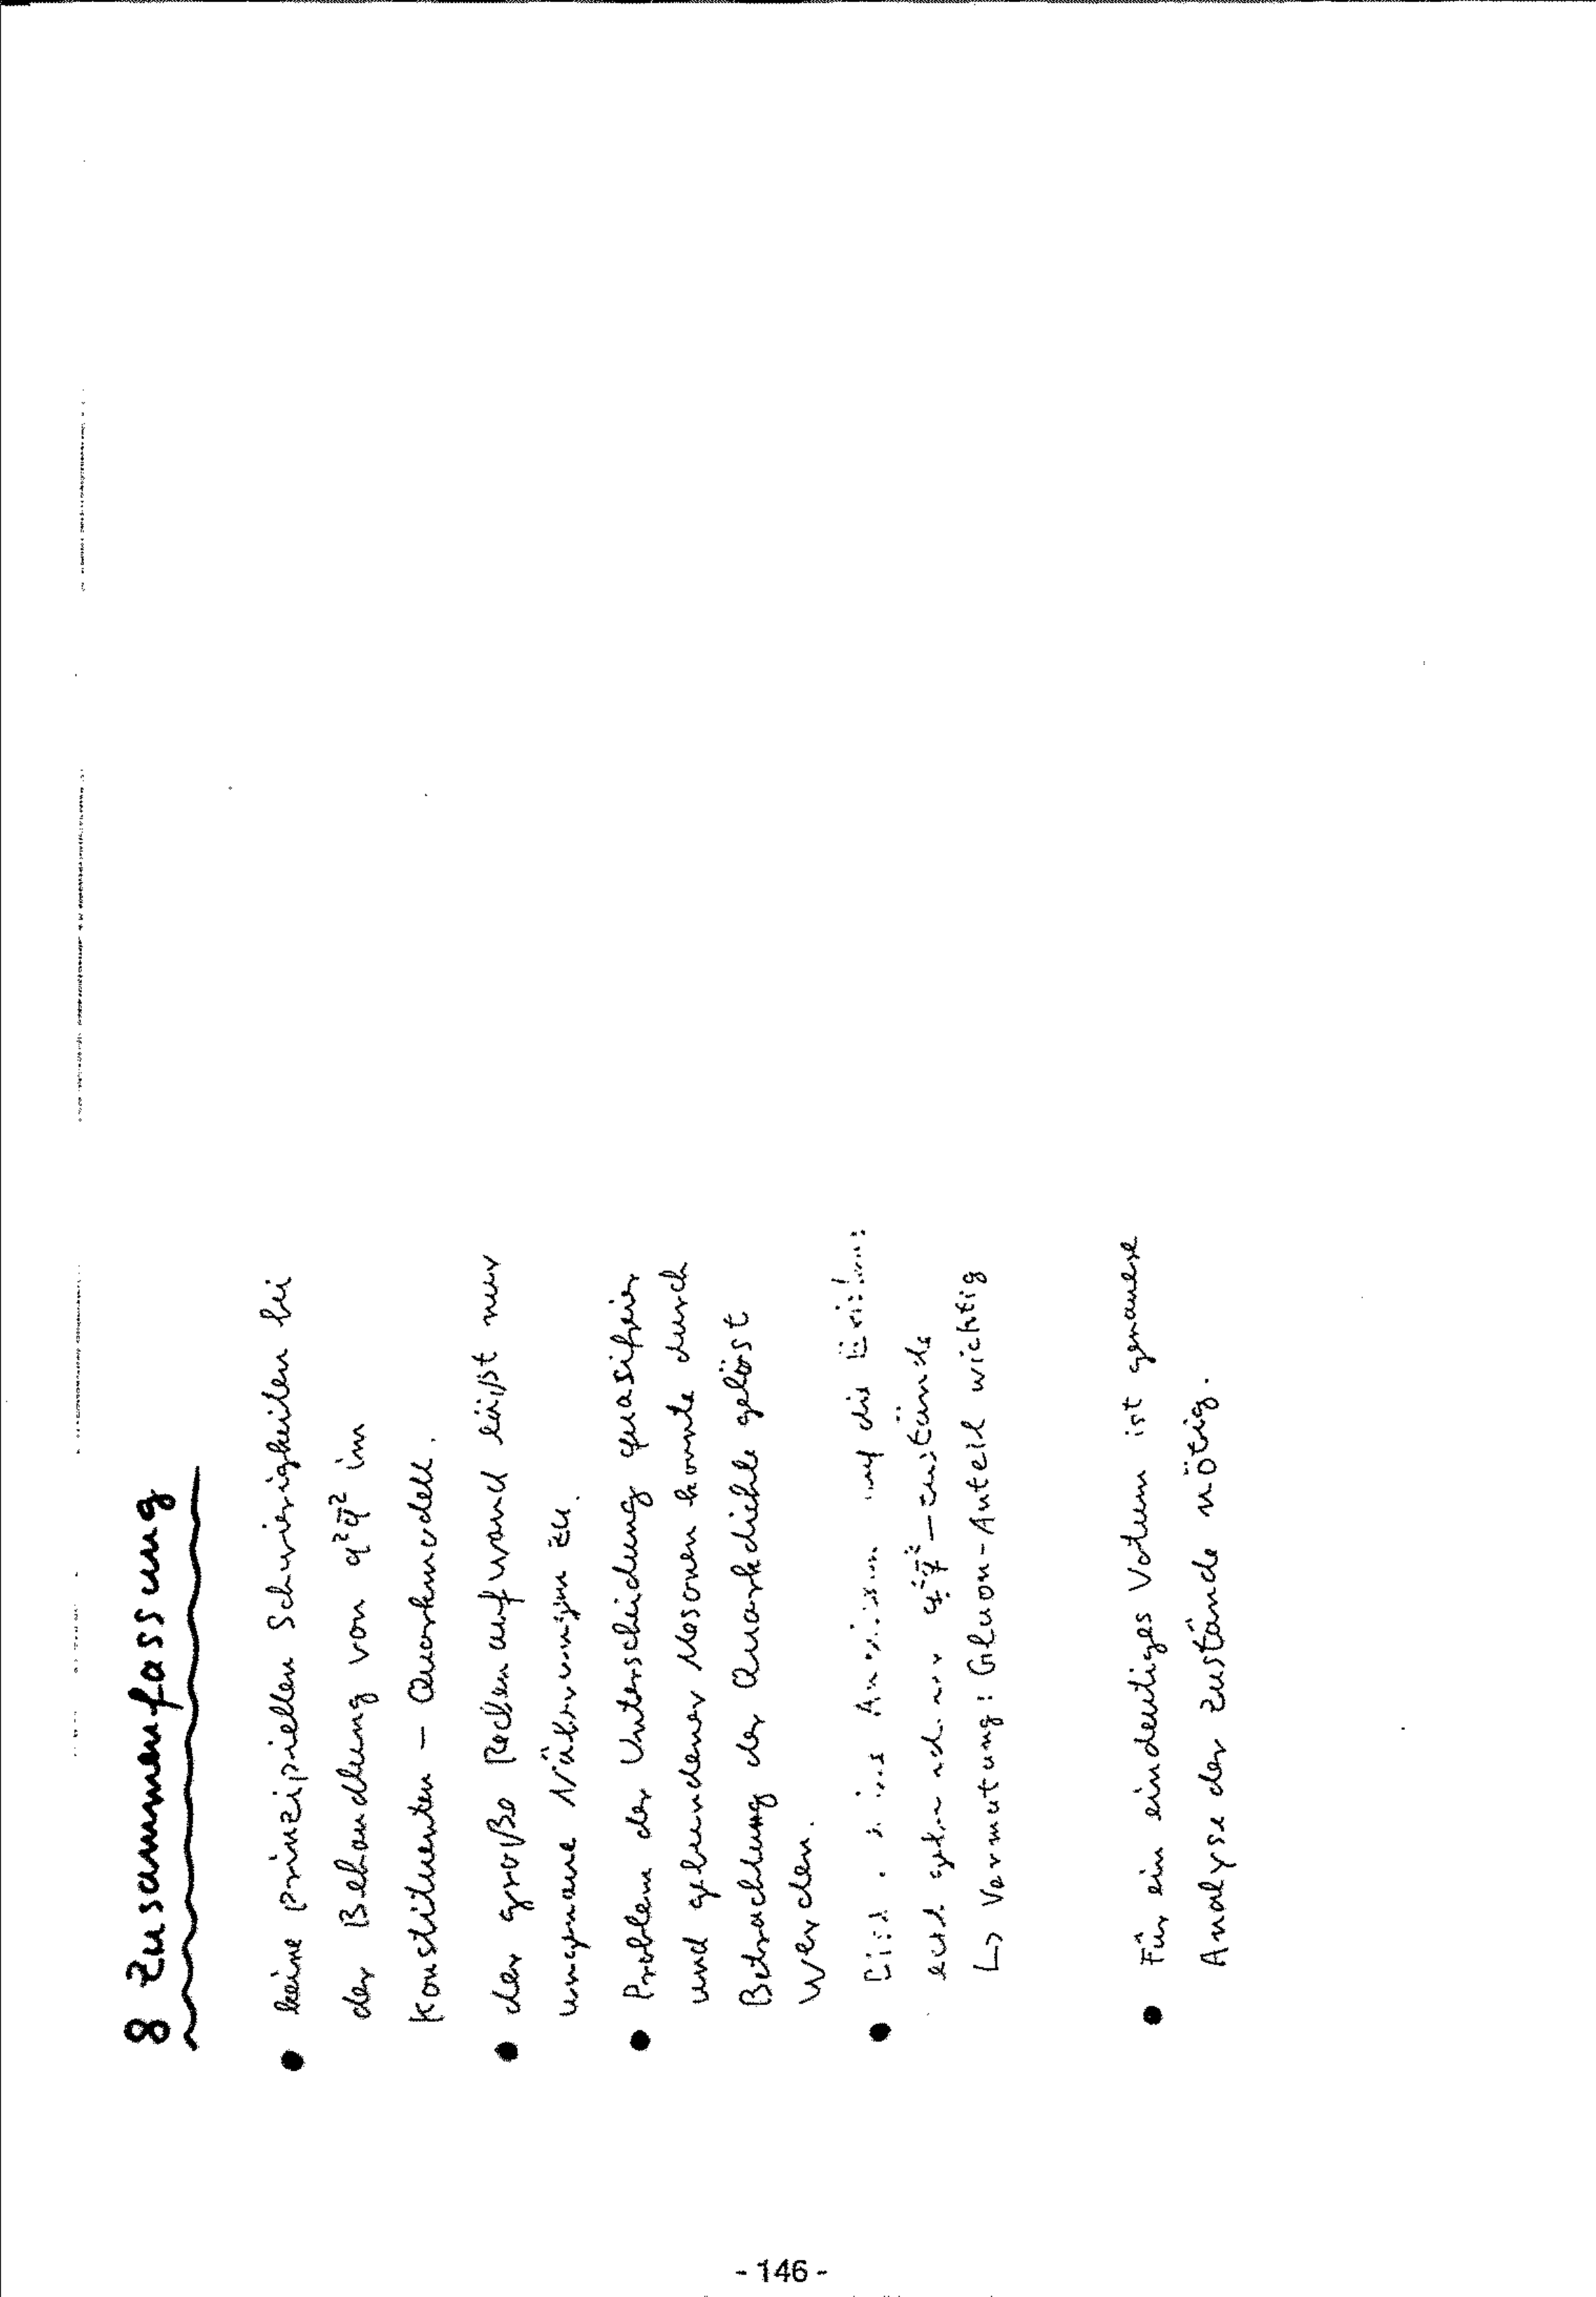 8 Zusammenfassung
• keine prinzipiellen Schwierigkeiten bei
der Behandlung von q²q̄² im
Konstituenten - Quarkmodell.
• der große Rechenaufwand läßt nur
ungenaue Näherungen zu.
• Problem der Unterscheidung quasifreier
und gebundener Mesonen konnte durch
Betrachtung der Quarkdichte gelöst
werden.
• auf die
q²q̄² - Zustände
↳ Vermutung: Gluon-Anteil wichtig
• Für ein eindeutiges Votum ist genauere
Analyse der Zustände nötig.
- 146 -